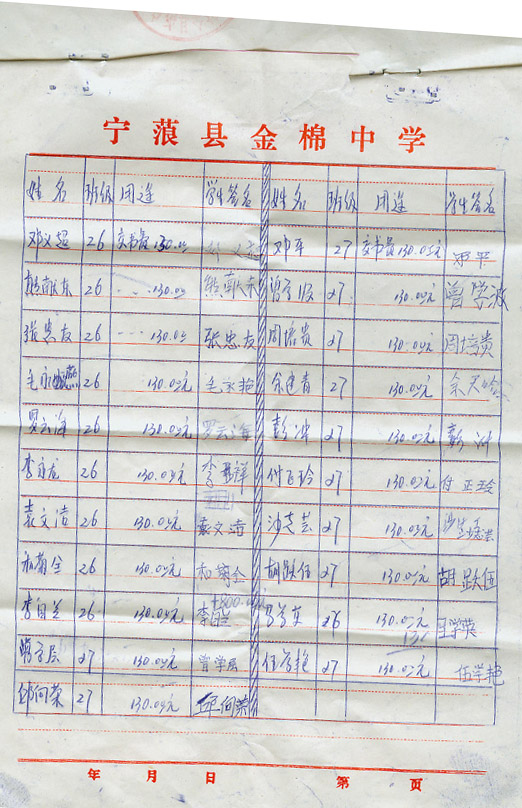 宁蒗县金棉中学
姓名 班级 用途 学生签名 姓名 班级 用途 学生签名
邓义超 26 交书费130.00 邓平 27 交书费130.00元 邓平
熊献东 26 130.00 熊献东 曾学波 27 130.00元 曾学波
张忠友 26 130.00 张忠友 周培贵 27 130.00元 周培贵
毛永艳 26 130.00元 毛永艳 余建青 27 130.00元
罗云海 26 130.00元 罗云海 彭冲 27 130.00元 彭冲
26 130.00元 付正玲 27 130.00元 付正玲
袁文洁 26 130.00元 袁文洁 27 130.00元
和菊全 26 130.00元 和菊全 胡跃伍 27 130.00元 胡跃伍
李自兰 26 130.00元 26 130.00元 王学英
曾学层 27 130.00元 曾学层 伍学艳 27 130.00元 伍学艳
邱向荣 27 130.00元 邱向荣
年 月 日 第 页